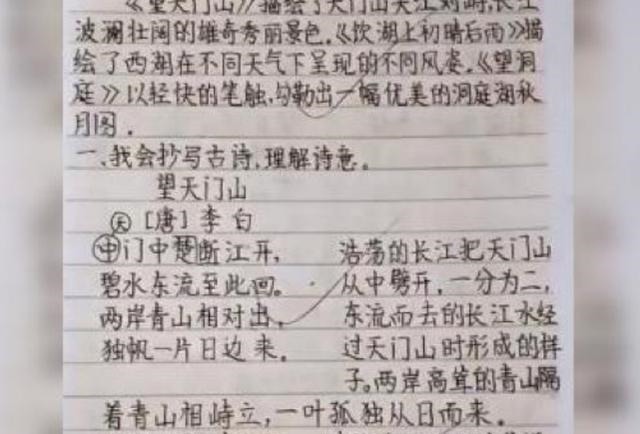 《望天门山》描绘了天门山夹江对峙,长江
波澜壮阔的雄奇秀丽景色.《饮湖上初晴后雨》描
绘了西湖在不同天气下呈现的不同风姿.《望洞
庭》以轻快的笔触,勾勒出一幅优美的洞庭湖秋
月图.
一、我会抄写古诗,理解诗意。
望天门山
天 [唐] 李白
中门中楚断江开, 浩荡的长江把天门山
碧水东流至此回。 从中劈开,一分为二,
两岸青山相对出, 东流而去的长江水经
独帆一片日边来。 过天门山时形成的样
子。两岸高耸的青山隔
着青山相峙立,一叶孤独从日而来。